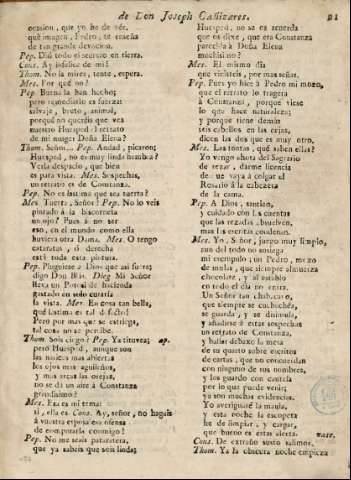 de Don Joseph Cañizares.
ocasion, que yo he de vér,
qué imagen, Pedro, te enseña
de tan grande devocion.
Pep. Dió todo el secreto en tierra.
Cons. Ay infelice de mí!
Thom. No la mires, tente, espera.
Mes. Por qué no?
Pep. Buena la han hecho;
pero remediarlo es fuerza:
salvage, bruto, animal,
porqué no queréis que vea
nuestro Huesped el retrato
de mi muger Doña Elena?
Thom. Señor... Pep. Andad, picaron;
Huesped, no es muy linda hembra?
Verla despacio, que bien
es para vista. Mes. Sospechas,
un retrato es de Constanza.
Pep. No es lastima que sea tuerta?
Mes. Tuerta, Señor? Pep. No lo veis
pintado á la
un ojo? Pues á no ser
eso, en el mundo como ella
huviera otra Dama. Mes. O tengo
cataratas, ó derecha
está toda esta pintura.
Pep. Pluguiese á Dios que así fuera;
digo Don Blas. Mi Señor
lleva un de hacienda
gastado en solo curarla
la vista. Mes. Es cosa tan bella,
qué lastima es tal defecto!
Pero por mas que se estriega,
tal cosa no se percibe.
Thom. Sois ciego? Pep. Ya titubea; ap.
pero Huesped, aunque son
las narices mas abiertas
los ojos mas aguileños,
y mas arcas las orejas,
no se dá un ayre á Constanza
grandisimo?
Mes. Esa es mi tema:
si, ella es. Cons. Ay, señor, no hagais
á vuestra esposa esa ofensa
de compararla conmigo!
Pep. No me seais pataratera,
que ya sabeis que sois linda;
Huesped, no se os acuerda
que os dixe, que era Constanza
parecida á Doña Elena
muchisimo?
Mes. El mismo dia
que venisteis, por mas señas.
Pep. Pues yo hice á Pedro mi mozo,
que el retrato lo tragera
á Constanza, porque viese
lo que hace naturaleza;
y porque tiene demás
seis cabellos en las cejas,
dicen las dos que es muy otro.
Mes. Las tontas, qué saben ellas?
Yo vengo ahora del Sagrario
de rezar, darme licencia
de que vaya á colgar el
Rosario á la cabecera
de la cama.
Pep. A Dios, santazo,
y cuidado con las cuentas
que las rezadas absuelven,
mas las escritas condenan.
Mes. Yo, Señor, juego muy limpio,
aun del todo no sosiega
mi escrupulo; un Pedro, mozo
de mulas, que siempre almuerza
chocolate, y al establo
en todo el dia no entra.
Un Señor tan chabacano,
que siempre se cuchichéa,
se guarda, y se disimula,
y añadirse á estas sospechas
un retrato de Constanza,
y hallar debaxo la mesa
de su quarto sobre escritos
de cartas, que no concuerdan
con ninguno de sus nombres,
y los guardo con cautela
por lo que puede venir;
ya son muchas evidencias.
Yo averiguaré la maula,
y esta noche la escopeta
he de limpiar, y cargar,
que bueno es estar alerta. vase.
Cons. De extraño susto salimos.
Thom. Ya la obscura noche empieza